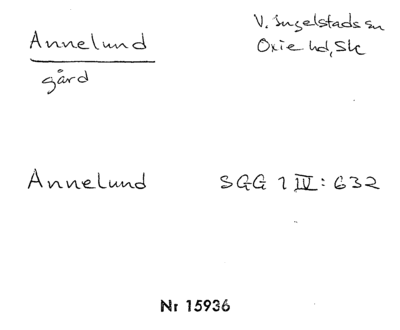 Annelund
V. Ingelstads sn
gård
Oxie hd, Sk
Annelund SGG 1 IV: 632
Nr 15936